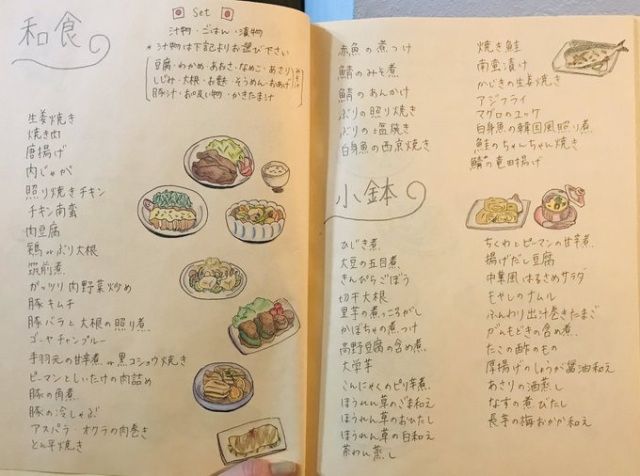 和食
Set
汁物・ごはん・漬物
*汁物は下記よりお選び下さい
豆腐・わかめ・あおさ・なめこ・あさり
しじみ・大根・お麸・そうめん・おあげ
豚汁・お吸い物・かきたま汁
生姜焼き
焼き肉
唐揚げ
肉じゃが
照り焼きチキン
チキン南蛮
肉豆腐
鶏orぶり大根
筑前煮
ガッツリ肉野菜炒め
豚キムチ
豚バラと大根の照り煮
ゴーヤチャンプルー
手羽元の甘辛煮or黒コショウ焼き
ピーマンとしいたけの肉詰め
豚の角煮
豚の冷しゃぶ
アスパラ・オクラの肉巻き
とん平焼き
赤魚の煮つけ
鯖のみそ煮
鯖のあんかけ
ぶりの照り焼き
ぶりの塩焼き
白身魚の西京焼き
焼き鮭
南蛮漬け
かじきの生姜焼き
アジフライ
マグロのユッケ
白身魚の韓国風照り煮
鮭のちゃんちゃん焼き
鯖の竜田揚げ
小鉢
ひじき煮
大豆の五目煮
きんぴらごぼう
切干大根
里芋の煮っころがし
かぼちゃの煮つけ
高野豆腐の含め煮
大学芋
こんにゃくのピリ辛煮
ほうれん草のごま和え
ほうれん草のおひたし
ほうれん草の白和え
茶わん蒸し
ちくわとピーマンの甘辛煮
揚げだし豆腐
中華風はるさめサラダ
モヤシのナムル
ふんわり出汁巻きたまご
がんもどきの含め煮
たこの酢のもの
厚揚げのしょうが醤油和え
あさりの酒蒸し
なすの煮びたし
長芋の梅おかか和え